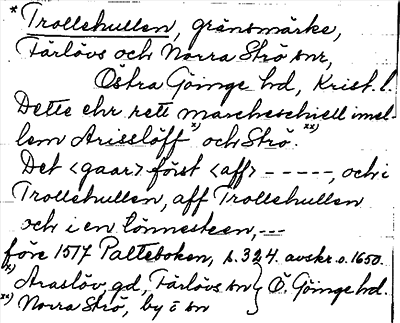 * Trollehullen, gränsmärke,
Färlövs och Norra Strö snr,
Östra Göinge hd, Krist. l.
Dette ehr rett marcheschiell imel-
lem Arisslöff x) och Strö. xx)
Det <gaar> först <aff> -----, och i
Trollehullen, aff Trollehullen
och i en lönnesteen, ---
före 1517 Palteboken, s. 324. avskr. o. 1650.
x) Araslöv, gd, Färlövs sn } Ö. Göinge hd.
xx) Norra Strö, by i sn